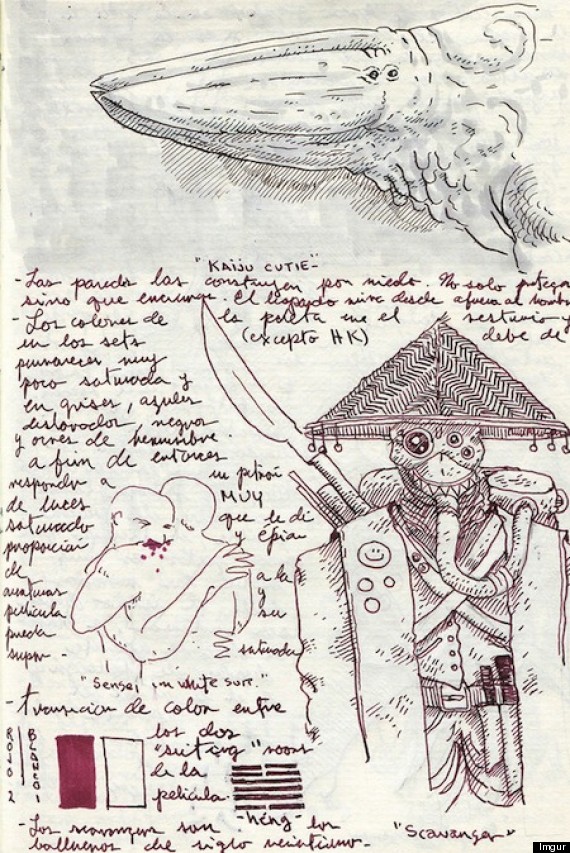 "KAIJU CUTIE"
- Las paredes las construyen por miedo. No solo protegen
sino que encierran. El llegado mira desde afuera al hombre
- Los colores de la paleta en el vestuario y
en los sets (excepto HK) debe de
permanecer muy
poco saturada y
en grises, azules
deslavados, negros
y ocres de herrumbre.
a fin de entonces
responder a un patrón
de luces MUY
saturado que le dé
proporción y épica
de a la
aventuras y
película su
pueda saturada
"Sensei in white suit."
- Transición de color entre
los dos
"suiting" rooms
de la
película.
ROJO 2
BLANCO 1
- héng -
- Los scavangers son los
balleneros de siglo veintiuno -
"Scavanger"
Imgur